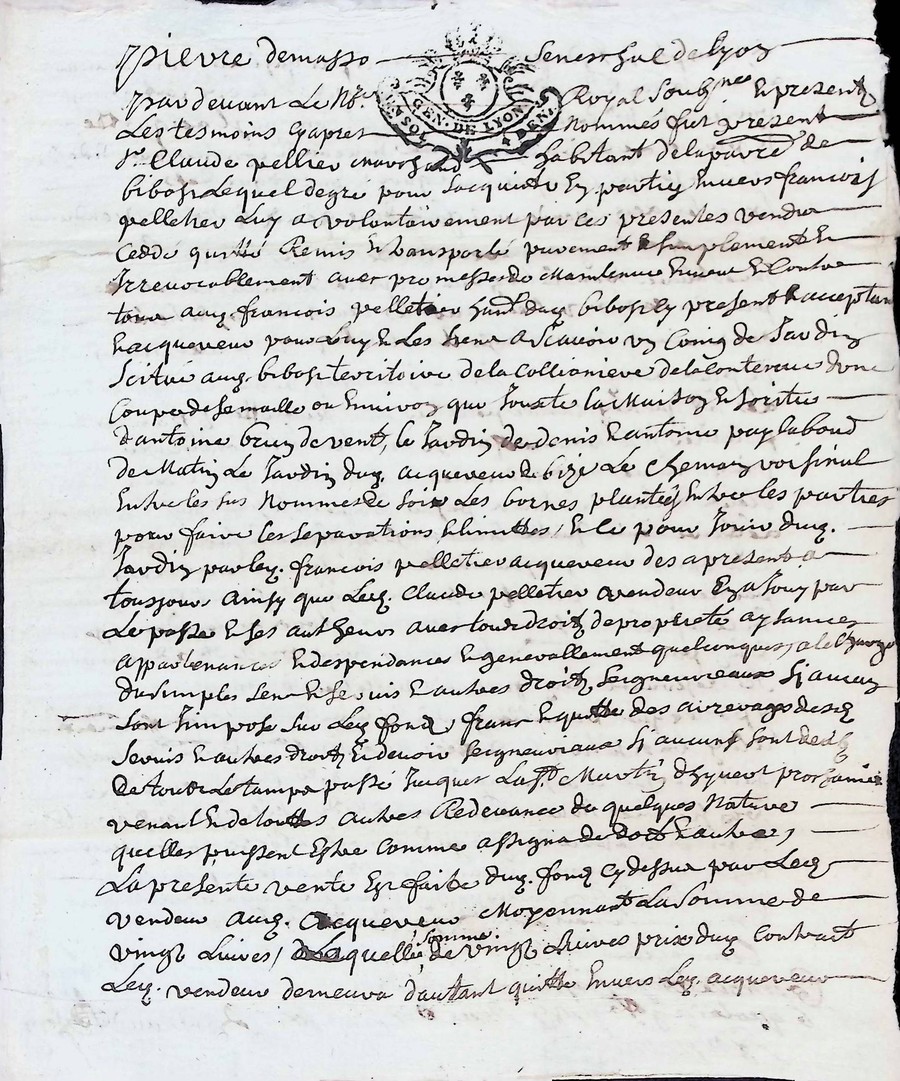 pierre demasso seneschal de lyon
GEN. DE LYON
par devant Le No.re Royal Soubz.né En presente
Les tesmoins Cyapres Nommes fut present
Sr. Claude pellier marchand habitant de la parre de
bibost Lequel de gré pour Sacquitte En partie Envers francois
pelletier Luy a volontairement par ces presentes vendu
Ceddé quitté Remis Et transporté purement Et simplement Et
Irrevocablement aver promesse de Maintenue Envers Et Contre
tous aud. francois pelletier hant. dud. bibost Cy present Et acceptant
Et acquereur pour Luy Et Les siens A Scavoir un Coing de Jardin
Scitué aud. bibost territoire de la Collianiere de la Contenue d'une
Coupe de semaille ou Environ que Jouxte la Maison Et
d'antoine brun de vent, le Jardin de denis Et antoine paylaboud
de Matin Le Jardin dud. acquereur de bize Le Chemin voisinal
Entre les sus Nommes de soir Les bornes plantés Entre les parties
pour faire les separations Et limittes, Et ce pour Jouir dud.
Jardin par led. francois pelletier acquereur des apresent a
tousjours Ainsy que Led. Claude pelletier vendeur En a Jouy par
Le passé Et ses autheurs aver tous droitz de propriete aysances
appartenances Et despendances Et generallement quelconques, a la Charge
du simple Cens Et servis Et autres droitz Seigneureaux Sj aucun
sont Imposé sur Led. fond, franc Et quitte des arrerages desd.
servis Et autres droitz Et devoir Seigneuriaux Sj aucuns sont deub
De tout Le temps passé Jusques La st. Martin d'hyvert prochaine
venant Et de touttes autres Redevance de quelques Nature
quelles puissent Estre Comme assigna de dot Et autres,
La presente vente Est faite dud. fond Cy dessus par Led.
vendeur aud. acquereur Moyennant La somme de
vingt Livres, Laquelle somme de vingt Livres prix dud. Contract
Led. vendeur demeura d'autant quitte Envers Led. acquereur